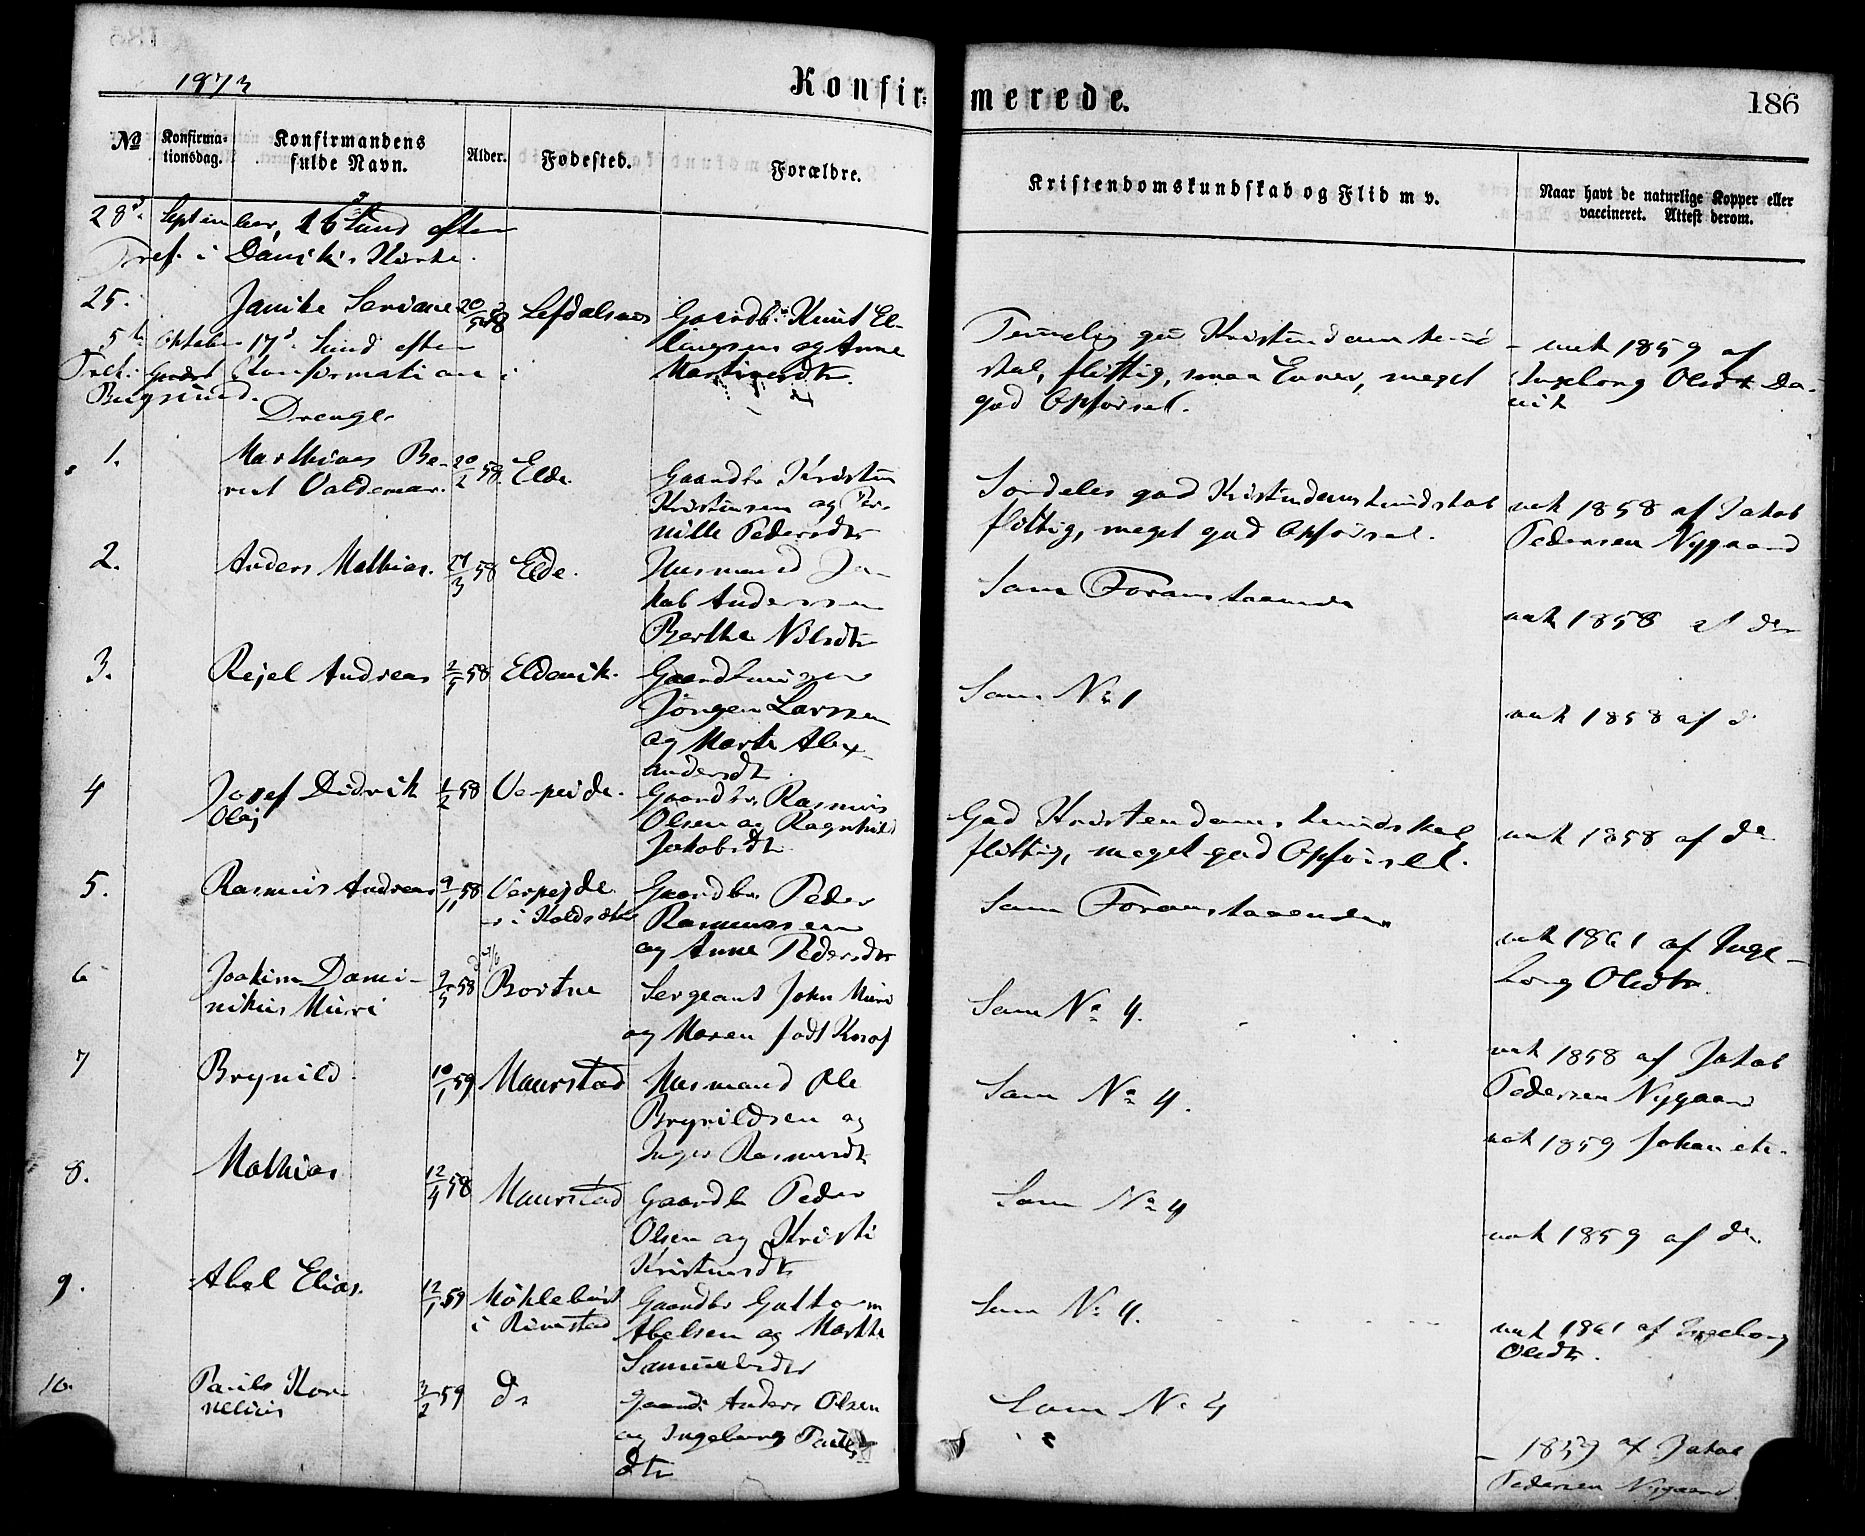 1873
Konfirmerede.
186
№
Konfirmationsdag.
Konfirmandens fulde Navn.
Alder.
Fødested.
Forældre.
Kristendomskundskab og Flid m v.
Naar havt de naturlige Kopper eller vaccineret. Attest derom.
28d. September, 16d Sund efter
Tref. i Daviks Kirke.
25. Janike Seriane 20/3 58 Lefdalsnes Gaardbr. Knut El-
lingsen og Anne
Martinesdtr.
Temmelig god Kristendomskund-
skab, flittig, smaa Evner, meget
god Opførsel.
vak 1859 af
Ingeborg Olsdtr Da-
vik
5te Oktober 17d. Sund efter
Tref. Konfirmation i
Bugsund.
Drenge.
1. Matthias Be-
rent Valdemar. 20/2 58 Elde.
Gaardbr Kristen
Kristensen og Per-
nille Pedersdtr
Særdeles god Kristendomskundskab
flittig, meget god Opførsel.
vak 1858 af Jakob
Pedersen Nygaard
2. Anders Mathias. 58 Elde.
Husmand Ja-
kob Anderssen
Berthe Nilsdtr
Som Foranstaaende
vak 1858 af do
3. Rejel Andreas 58 Eldevik.
Gaardbruger
Jörgen Larssen
og Marte Alex-
andersdtr.
Som No 1
vak 1858 af d
4 Josef Didrik
Olaj 1/2 58 Verpeide.
Gaardbr. Rasmus
Olsen og Ragnhild
Jakobsdtr.
God Kristendomskundskab
flittig, meget god Opførsel.
vak 1858 af do
5. Rasmus Andreas 9/11 58 Verpejde
i Koldsætr
Gaardbr Peder
Rasmussen
og Anne Pedersdtr
Som Foranstaaende
vak 1861 af Inge-
borg Olsdtr.
6 Joakim Domi-
nikus Muri 58 Bortne
Sergeant John Muri
og Maren født Knof
Som No 4.
vak 1858 af Jakob
Pedersen Nygaard
7 Brynild 10/1 59 Maurstad
Husmand Ole
Brynildsen og
Inger Rasmusdtr
Som No 4.
vak 1859 Johan etc.
8. Mathias 12/4 58 Maurstad
Gaardbr Peder
Olsen og Kristi
Kristensdtr
Som No 4
vak 1859 af do
9. Abel Elias. 12/1 59 Möklebust
i Rimstad
Gaardbr Guttorm
Abelsen og Marthe
Samuelsdtr
Som No 4.
vak 1861 af Ingeborg
Olsdtr.
10. Pauls Kor-
nelius 3/2 59 do
Gaardb. Anders Olsen
og Ingeborg Pauls-
dtr
Som No 4
1859 af Jakob
Pedersen Nygaard